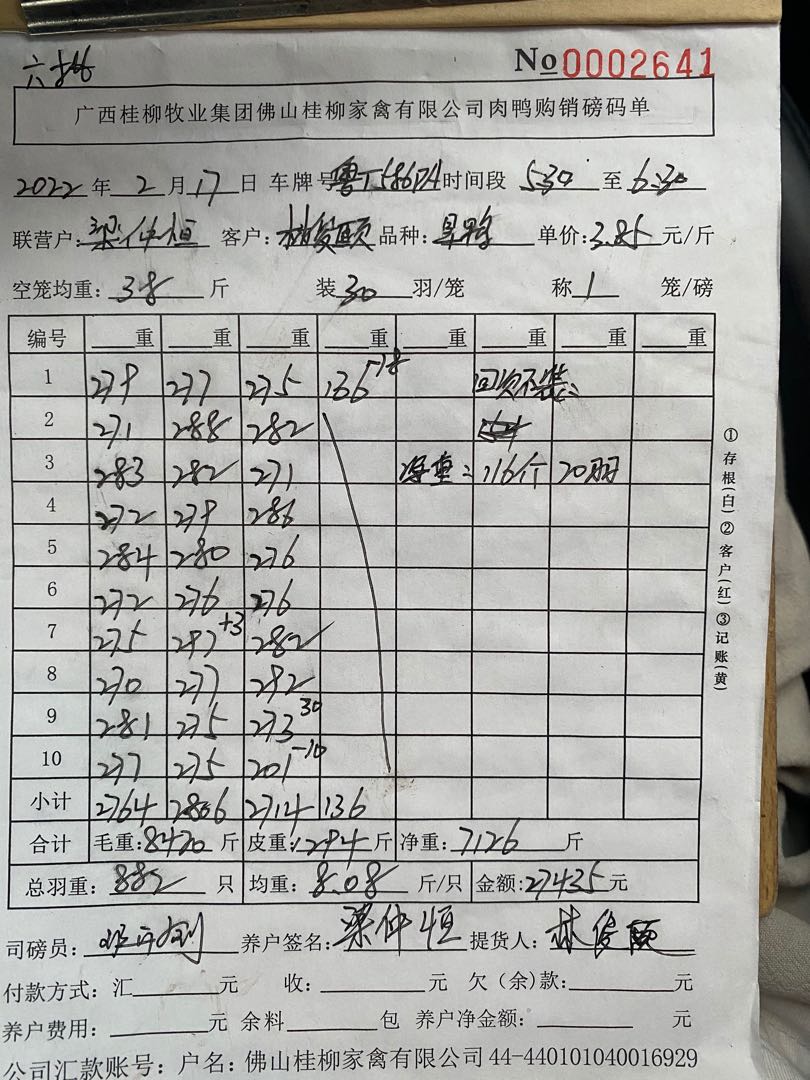 六批
No 0002641
广西桂柳牧业集团佛山桂柳家禽有限公司肉鸭购销磅码单
2022 年 2 月 17 日 车牌号 时间段 530 至 6:30
联营户: 梁仲恒 客户: 林俊颐 品种: 单价: 3.85 元/斤
空笼均重: 38 斤 装 30 羽/笼 称 1 笼/磅
编号 重 重 重 重 重 重 重 重
1 279 277 275 136 回资不装:
2 271 288 282
3 283 282 271 净重: 116斤 20羽
4 272 279 286
5 284 280 276
6 272 276 276
7 275 297 +3 282
8 270 277 292
9 281 275 273 30
10 277 275 201 -10
小计 2764 2806 2714 136
合计 毛重: 8420 斤 皮重: 1294 斤 净重: 7126 斤
总羽重: 882 只 均重: 8.08 斤/只 金额: 27435 元
司磅员: 养户签名: 梁仲恒 提货人: 林俊颐
付款方式: 汇 元 收: 元 欠(余)款: 元
养户费用: 元 余料 包 养户净金额: 元
公司汇款账号: 户名: 佛山桂柳家禽有限公司 44-440101040016929
①存根(白)②客户(红)③记账(黄)